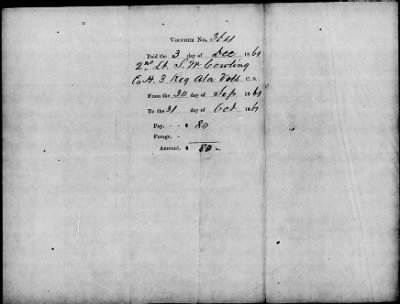 Voucher No. 364
Paid the 3 day of Dec 1861
2nd Lt. S. W. Cowling
Co H. 3 Reg Ala Vols C.S.
From the 30 day of Sep 1861
To the 31 day of Oct 1861
Pay, - - $ 80
Forage, -
Amount, $ 80 -